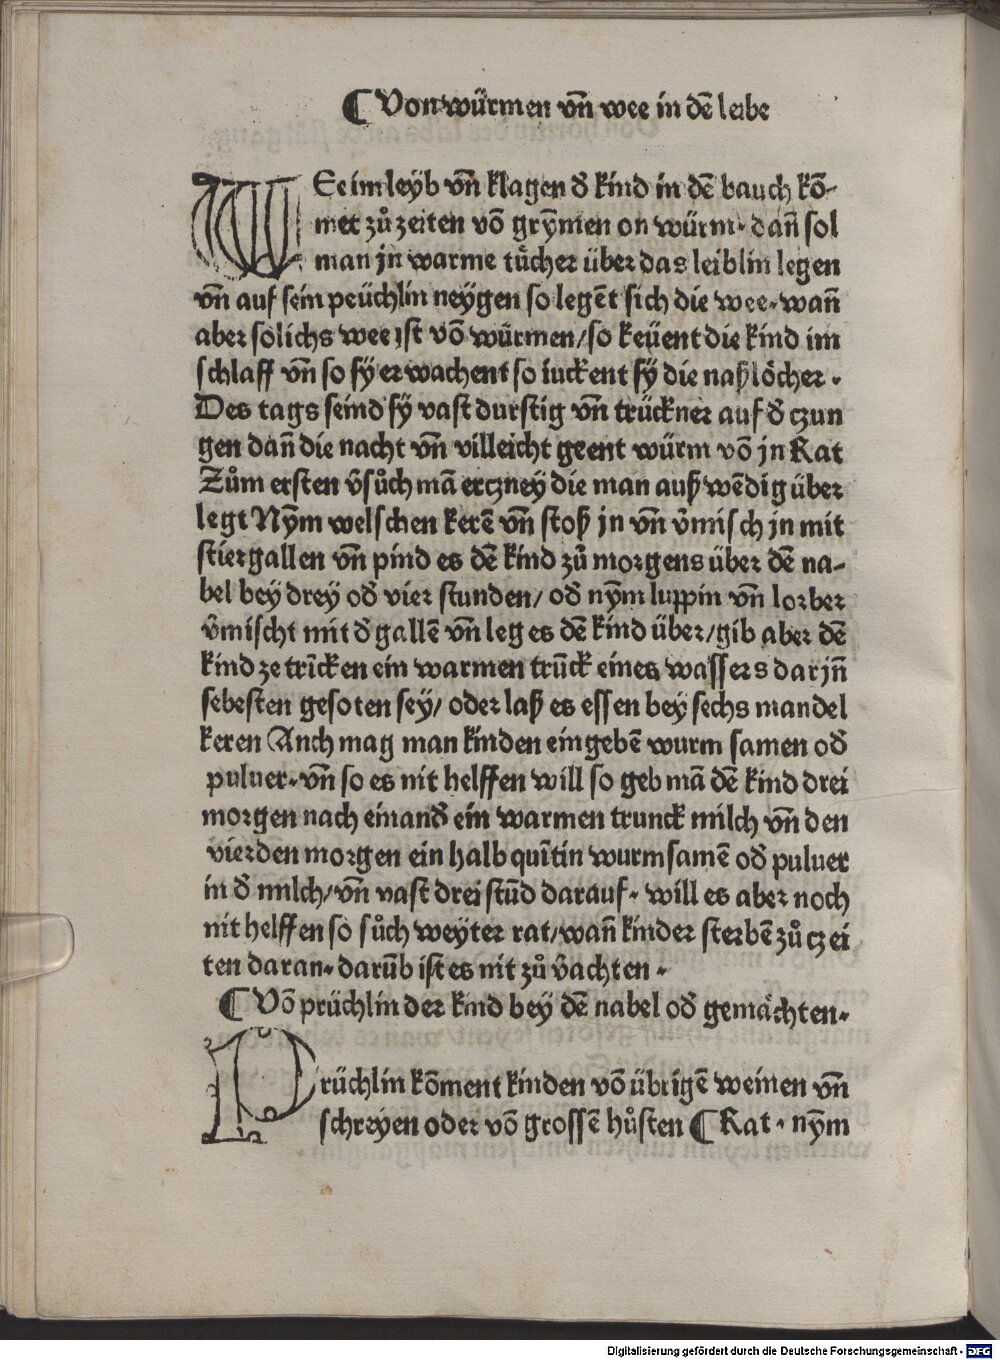 ¶ Von würmen vñ wee in dẽ leibe
WEe im leyb vñ klagen đ kind in dẽ bauch kõ-
met zů zeiten võ grỹmen on würm. dañ sol
man jn warme tücher über das leiblin legen
vñ auf sein peüchlin neygen so legẽt sich die wee. wañ
aber solichs wee ist võ würmen/so keüent die kind im
schlaff vñ so sÿ erwachent so iuckent sÿ die naßlöcher.
Des tags seind sÿ vast durstig vñ trückner auf đ czun
gen dañ die nacht vñ villeicht geent würm võ jn Rat
Zům ersten v̂sůch mã erczney die man außwẽdig über
legt Nỹm welschen kerẽ vñ stoß jn vñ v̂misch jn mit
stiergallen vñ pind es dẽ kind zů morgens über dẽ na-
bel bey drey ođ vier stunden/ ođ nỹm luppin vñ lorber
v̂mischt mit đ gallẽ vñ leg es dẽ kind über/gib aber dẽ
kind ze trĩcken ein warmen trũck eines wassers darjñ
sebesten gesoten sey/ oder laß es essen bey sechs mandel
keren Anch mag man kinden eingebẽ wurm samen ođ
puluer. vñ so es nit helffen will so geb mã dẽ kind drei
morgen nach einanđ ein warmen trunck milch vñ den
vierden morgen ein halb quĩtin wurmsamẽ ođ puluer
in đ milch/vñ vast drei stũd darauf. will es aber noch
nit helffen so sůch weyter rat/wañ kinder sterbẽ zů czei
ten daran. darũb ist es nit zů v̂achten.
¶ Võ prüchlin der kind bey dẽ nabel ođ gemächten.
PRüchlin kõment kinden võ übrigẽ weinen vñ
schreyen oder võ grossẽ hůsten ¶ Rat. nỹm
Digitalisierung gefördert durch die Deutsche Forschungsgemeinschaft - DFG